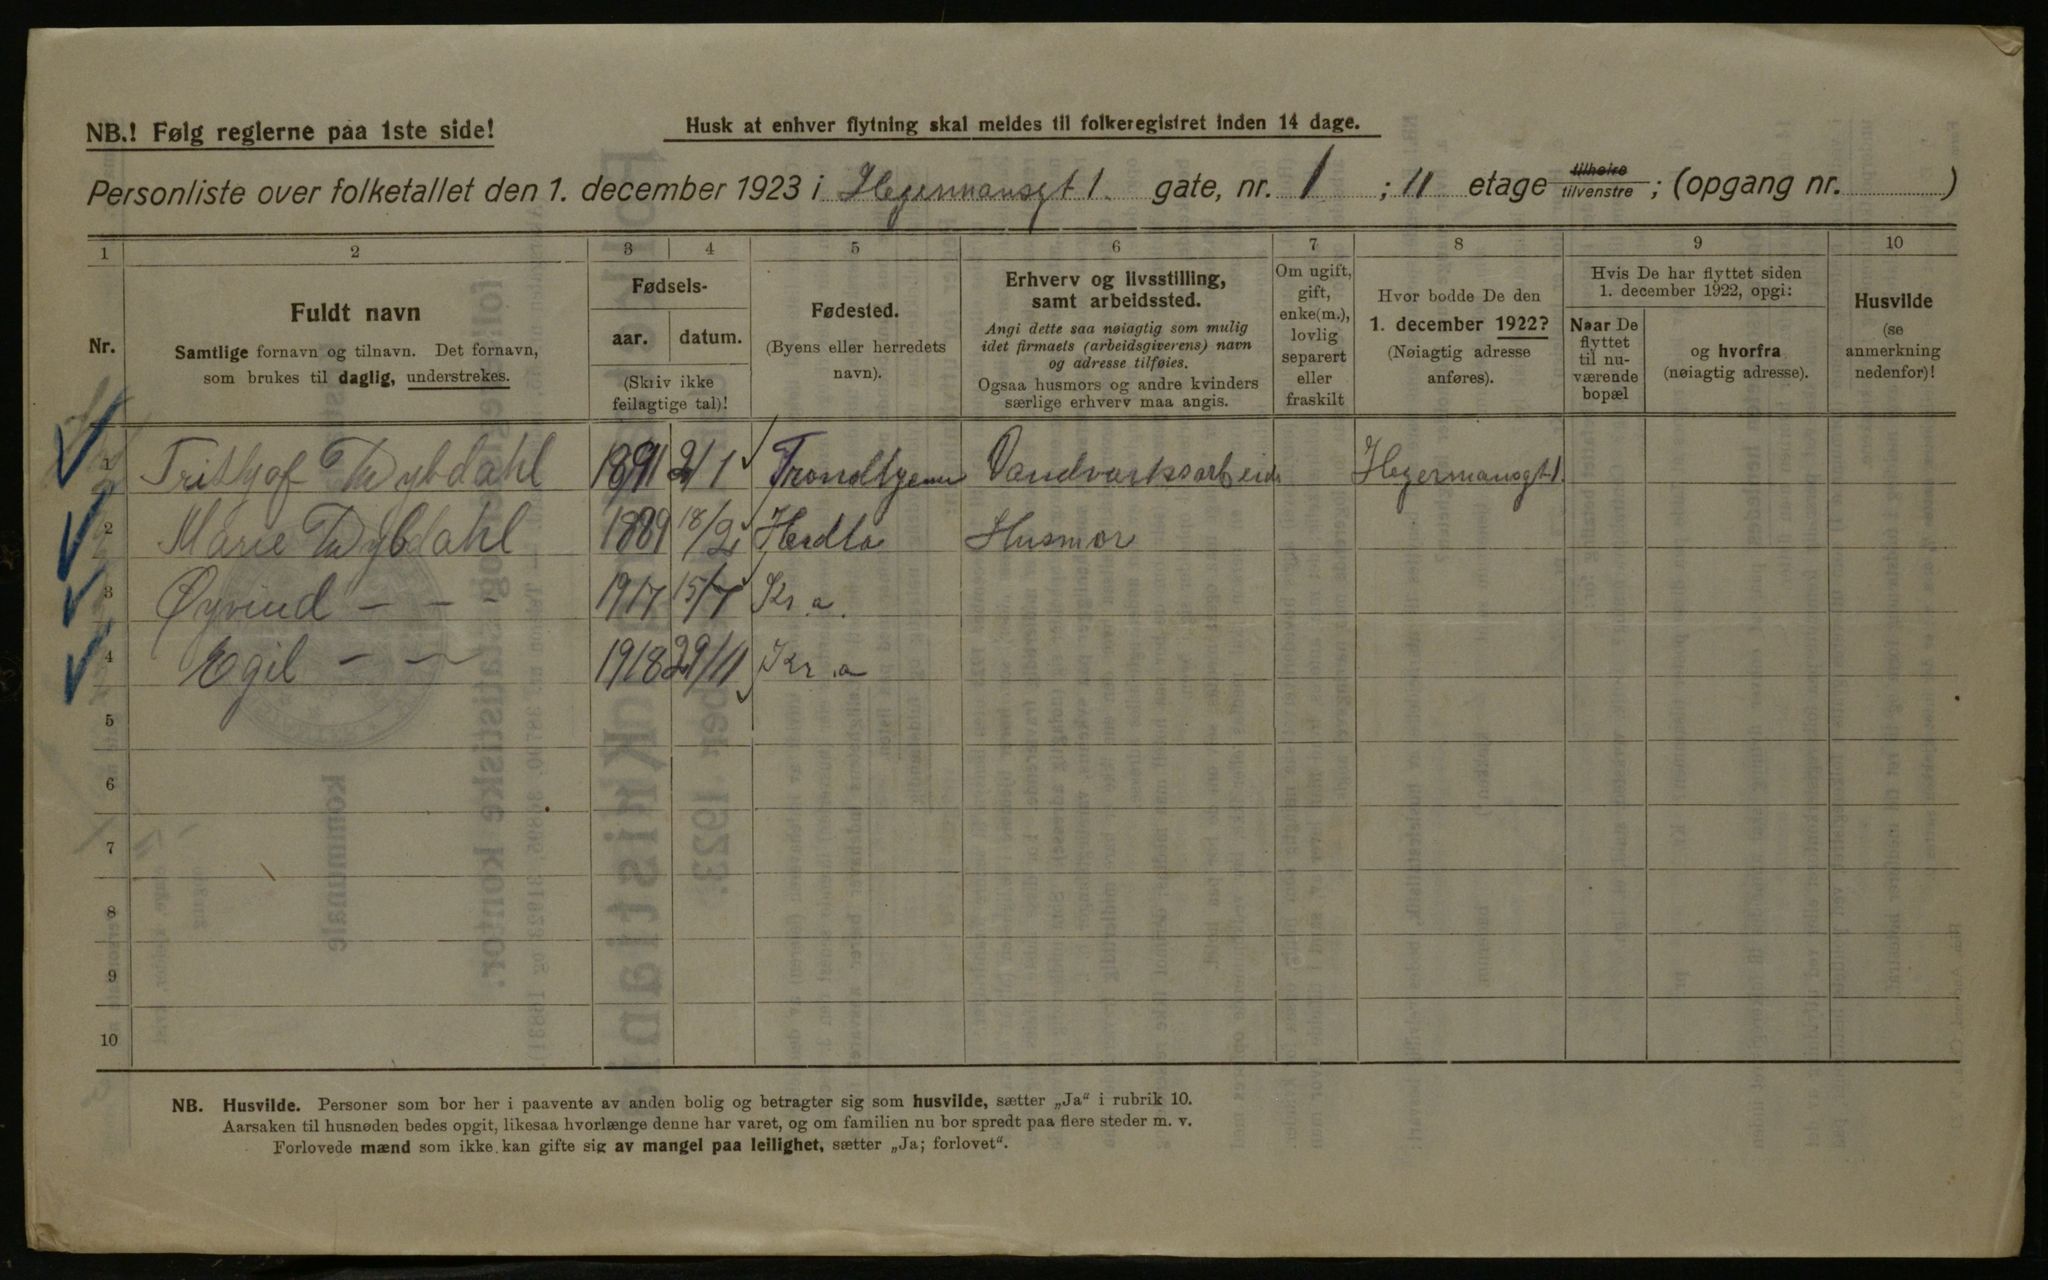 NB.! Følg reglerne paa 1ste side!
Husk at enhver flytning skal meldes til folkeregistret inden 14 dage.
Personliste over folketallet den 1. december 1923 i Hegermansgt 1. gate, nr. 1 ; II etage tilhøire tilvenstre ; (opgang nr. )
1 2 3 4 5 6 7 8 9 10
Nr.
Fuldt navn
Samtlige fornavn og tilnavn. Det fornavn,
som brukes til daglig, understrekes.
Fødsels-
aar. datum.
(Skriv ikke
feilagtige tal)!
Fødested.
(Byens eller herredets
navn).
Erhverv og livsstilling,
samt arbeidssted.
Angi dette saa nøiagtig som mulig
idet firmaets (arbeidsgiverens) navn
og adresse tilføies.
Ogsaa husmors og andre kvinders
særlige erhverv maa angis.
Om ugift,
gift,
enke(m.),
lovlig
separert
eller
fraskilt
Hvor bodde De den
1. december 1922?
(Nøiagtig adresse
anføres).
Hvis De har flyttet siden
1. december 1922, opgi:
Naar De
flyttet
til nu-
værende
bopæl
og hvorfra
(nøiagtig adresse).
Husvilde
(se
anmerkning
nedenfor)!
1 Trithjof Thybdahl 1891 2/1 Trondhjem Vandværksarbeid Hegermansgt 1.
2 Marie Thybdahl 1889 18/2 Herdla Husmor
3 Øyvind - - - 1917 15/7 Kr.a.
4 Egil - - 1918 29/11 Kr.a
5
6
7
8
9
10
NB. Husvilde. Personer som bor her i paavente av anden bolig og betragter sig som husvilde, sætter „Ja“ i rubrik 10.
Aarsaken til husnøden bedes opgit, likesaa hvorlænge denne har varet, og om familien nu bor spredt paa flere steder m. v.
Forlovede mænd som ikke kan gifte sig av mangel paa leilighet, sætter „Ja; forlovet“.